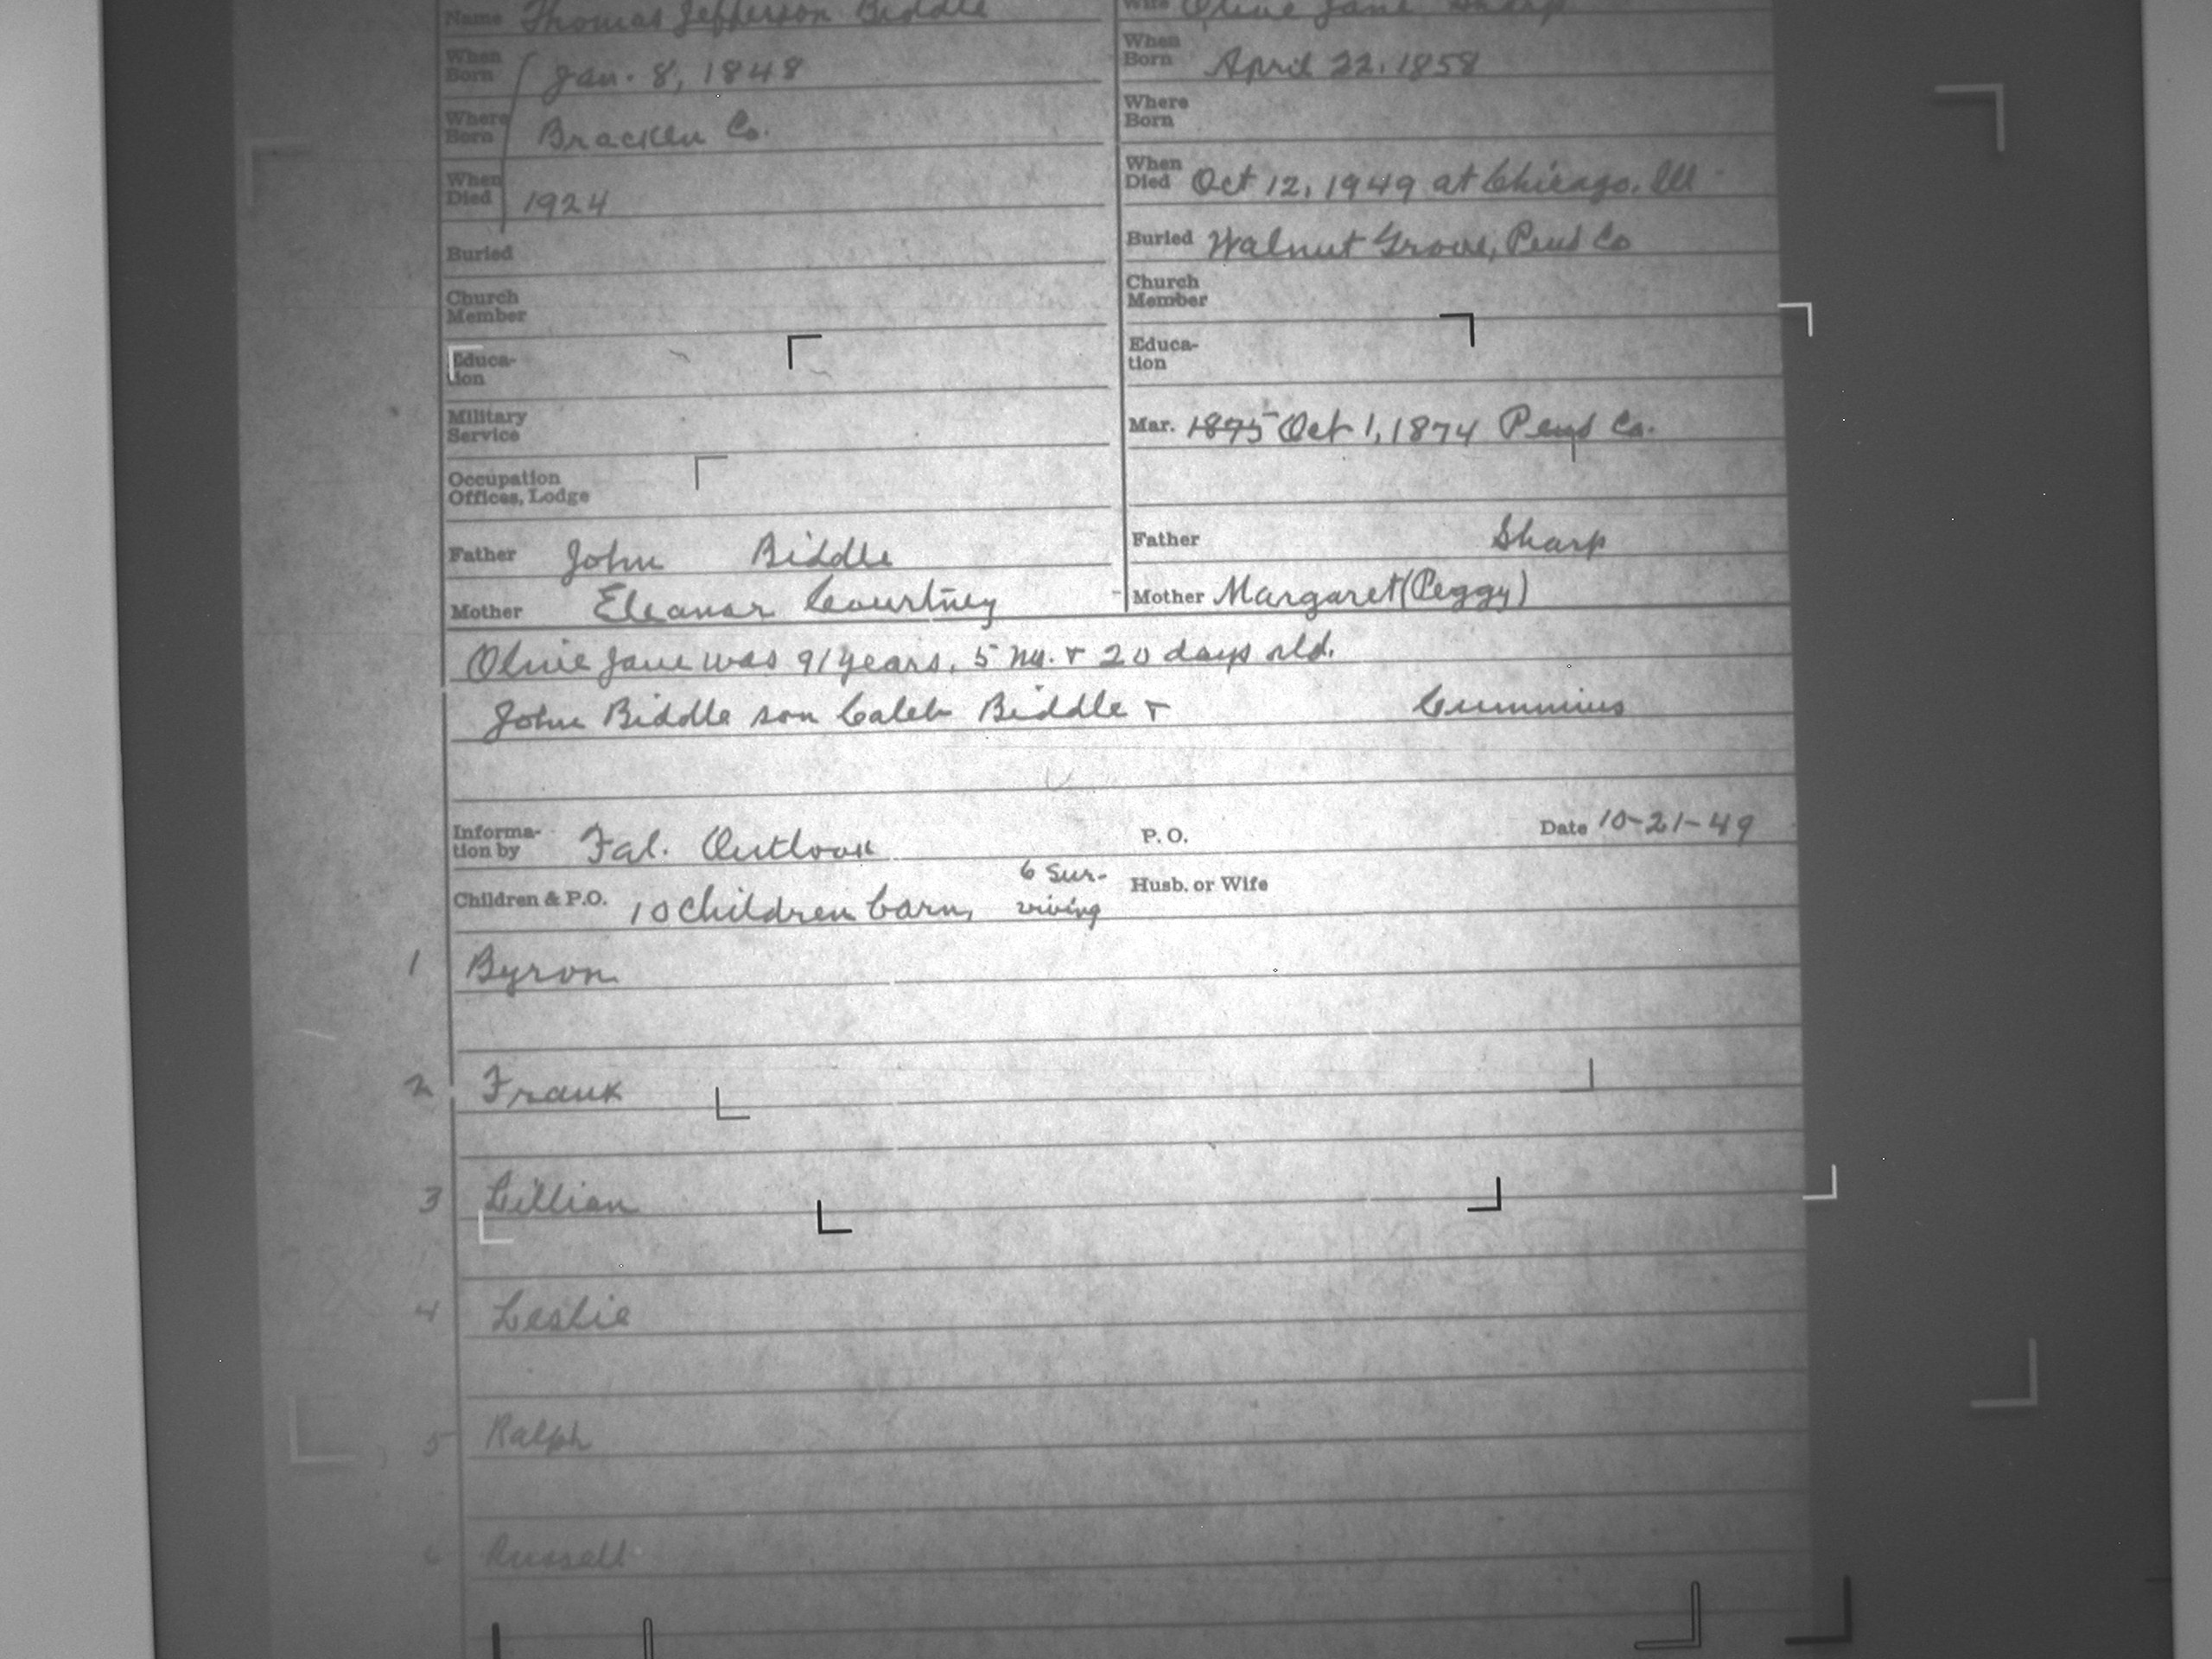 Name Thomas Jefferson Biddle
Wife Olivie Jane Sharp
When Born Jan. 8, 1848
When Born April 22, 1858
Where Born Bracken Co.
Where Born
When Died 1924
When Died Oct 12, 1949 at Chicago, Ill
Buried
Buried Walnut Grove, Pend Co
Church Member
Church Member
Educa-
tion
Educa-
tion
Military Service
Mar. 1875 Oct 1, 1874 Pend Co.
Occupation
Offices, Lodge
Father John Biddle
Father Sharp
Mother Eleanor Courtney
Mother Margaret (Peggy)
Olivie Jane was 91 years, 5 mo. & 20 days old.
John Biddle son Caleb Biddle & Cummins
Informa-
tion by Fal. Outlook P. O. Date 10-21-49
Children & P.O. 10 children born, 6 sur-
viving Husb. or Wife
1 Byron
2 Frank
3 Lillian
4 Leslie
5 Ralph
6 Russell